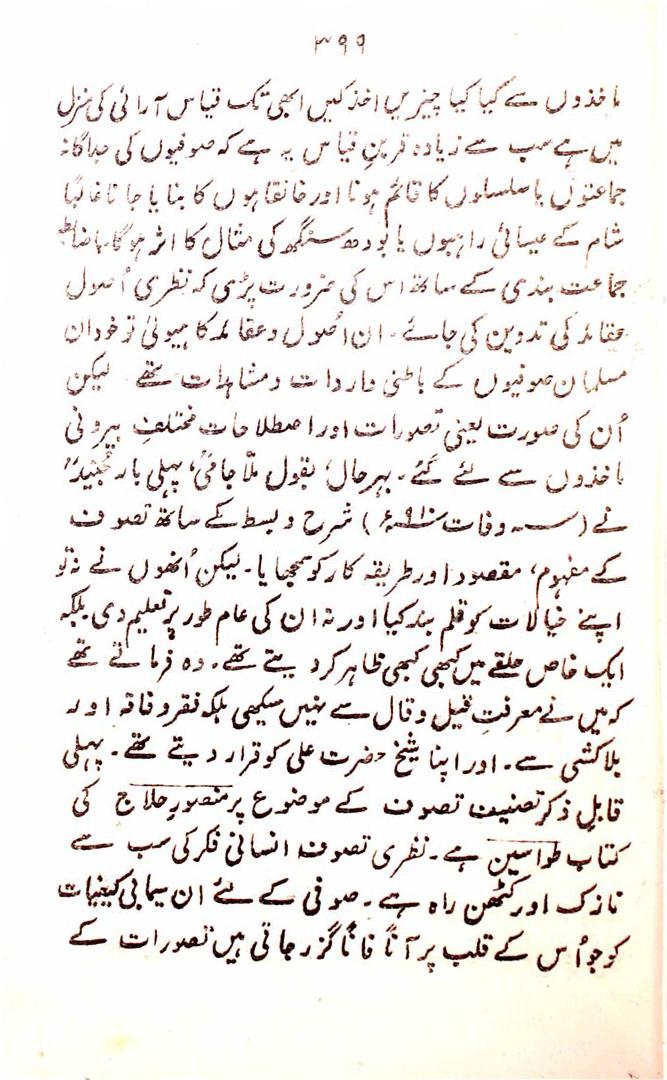 ۳۹۹
ماخذوں سے کیا کیا چیزیں اخذ کیں ابھی تک قیاس آرائی کی منزل
میں ہے سب سے زیادہ قرینِ قیاس یہ ہے کہ صوفیوں کی جداگانہ
جماعتوں یا سلسلوں کا قائم ہونا اور خانقاہوں کا بنایا جانا غالباً
شام کے عیسائی راہبوں یا بودھ سنگھ کی مثال کا اثر ہوگا۔ باضابطہ
جماعت بندی کے ساتھ اس کی ضرورت پڑی کہ نظری اُصول
عقائد کی تدوین کی جائے۔ ان اُصول و عقائد کا ہیولیٰ تو خود ان
مسلمان صوفیوں کے باطنی واردات و مشاہدات تھے لیکن
اُن کی صورت یعنی تصورات اور اصطلاحات مختلف بیرونی
ماخذوں سے لئے گئے۔ بہرحال، بقول ملّا جامیؒ، پہلی بار جُنیدؒ
نے (سنہ وفات ۹۱۰ء) شرح و بسط کے ساتھ تصوف
کے مفہوم، مقصود اور طریقہ کار کو سمجھایا۔ لیکن اُنھوں نے نہ تو
اپنے خیالات کو قلم بند کیا اور نہ ان کی عام طور پر تعلیم دی بلکہ
ایک خاص حلقے میں کبھی کبھی ظاہر کر دیتے تھے۔ وہ فرماتے تھے
کہ میں نے معرفتِ قیل و قال سے نہیں سیکھی بلکہ فقر و فاقہ اور
بلا کشی سے۔ اور اپنا شیخ حضرت علی کو قرار دیتے تھے۔ پہلی
قابلِ ذکر تصنیف تصوف کے موضوع پر منصورِ حلاج کی
کتاب طواسین ہے۔ نظری تصوف انسانی فکر کی سب سے
نازک اور کٹھن راہ ہے۔ صوفی کے لئے ان سیمابی کیفیات
کو جو اُس کے قلب پر آناً فاناً گزر جاتی ہیں تصورات کے